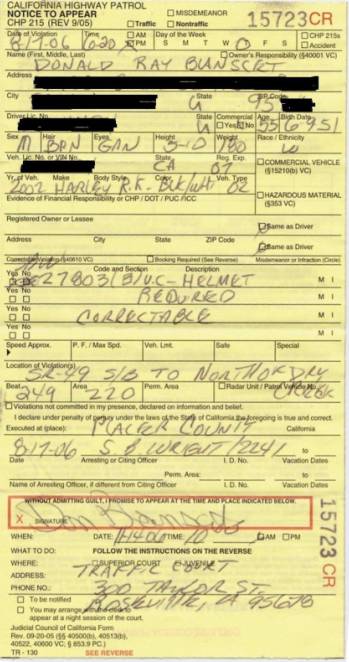 CALIFORNIA HIGHWAY PATROL
NOTICE TO APPEAR ☐ MISDEMEANOR 15723CR
CHP 215 (REV 9/05) ☐ Traffic ☐ Nontraffic
Date of Violation Time ☐ AM ☐ PM Day of the Week ☐ CHP 215s
8/17-06 S M T W F S ☐ Accident
Name (First, Middle, Last) ☐ Owner's Responsibility (§40001 VC)
DONALD RAY
Address
City State ZIP
95
Driver Lic. No. State Commercial Age Birth Date
☐ Yes ☐ No 55
Sex Hair Eyes Height Weight Race / Ethnicity
M BRN GRN 5-10 180 W
Veh. Lic. No. or VIN No. State Reg. Exp.
CA 07
☐ COMMERCIAL VEHICLE (§15210(b) VC)
Yr. of Veh. Make Body Style Color Veh. Type
2002 HARLEY R.K. BLK/WHT 02
Evidence of Financial Responsibility or CHP / DOT / PUC /ICC
☐ HAZARDOUS MATERIAL (§353 VC)
Registered Owner or Lessee
☐ Same as Driver
Address City State ZIP Code
☐ Same as Driver
Correctable Violation (§40610 VC) ☐ Booking Required (See Reverse) Misdemeanor or Infraction (Circle)
Yes No Code and Section Description
27803(B) V.C- HELMET M I
Yes No
REQUIRED M I
Yes No
CORRECTABLE M I
Yes No
M I
Speed Approx. P. F./ Max Spd. Veh. Lmt. Safe Special
Location of Violation(s)
SR-49 S/B TO NORTH OF DRY CREEK
Beat Area Perm. Area ☐ Radar Unit / Patrol Vehicle No.
249 220
☐ Violations not committed in my presence, declared on information and belief.
I declare under penalty of perjury under the laws of the State of California the foregoing is true and correct.
Executed at (place): PLACER COUNTY California
8/17-06 S B WRIGHT /2241 to
Date Arresting or Citing Officer I. D. No. Vacation Dates
Perm. Area: to
Name of Arresting Officer, if different from Citing Officer I. D. No. Vacation Dates
WITHOUT ADMITTING GUILT, I PROMISE TO APPEAR AT THE TIME AND PLACE INDICATED BELOW.
X SIGNATURE
15723 CR
WHEN: DATE: TIME: 10 ☐ AM ☐ PM
WHAT TO DO: FOLLOW THE INSTRUCTIONS ON THE REVERSE
WHERE: ☐ SUPERIOR COURT ☐ JUVENILE
TRAFFIC COURT
ADDRESS:
300 TAYLOR ST.
PHONE NO.:
ROSEVILLE, CA 95678
☐ To be notified
☐ You may arrange with the clerk to appear at a night session of the court.
Judicial Council of California Form
Rev. 09-20-05 (§§ 40500(b), 40513(b),
40522, 40600 VC; § 853.9 P.C.)
TR - 130 SEE REVERSE